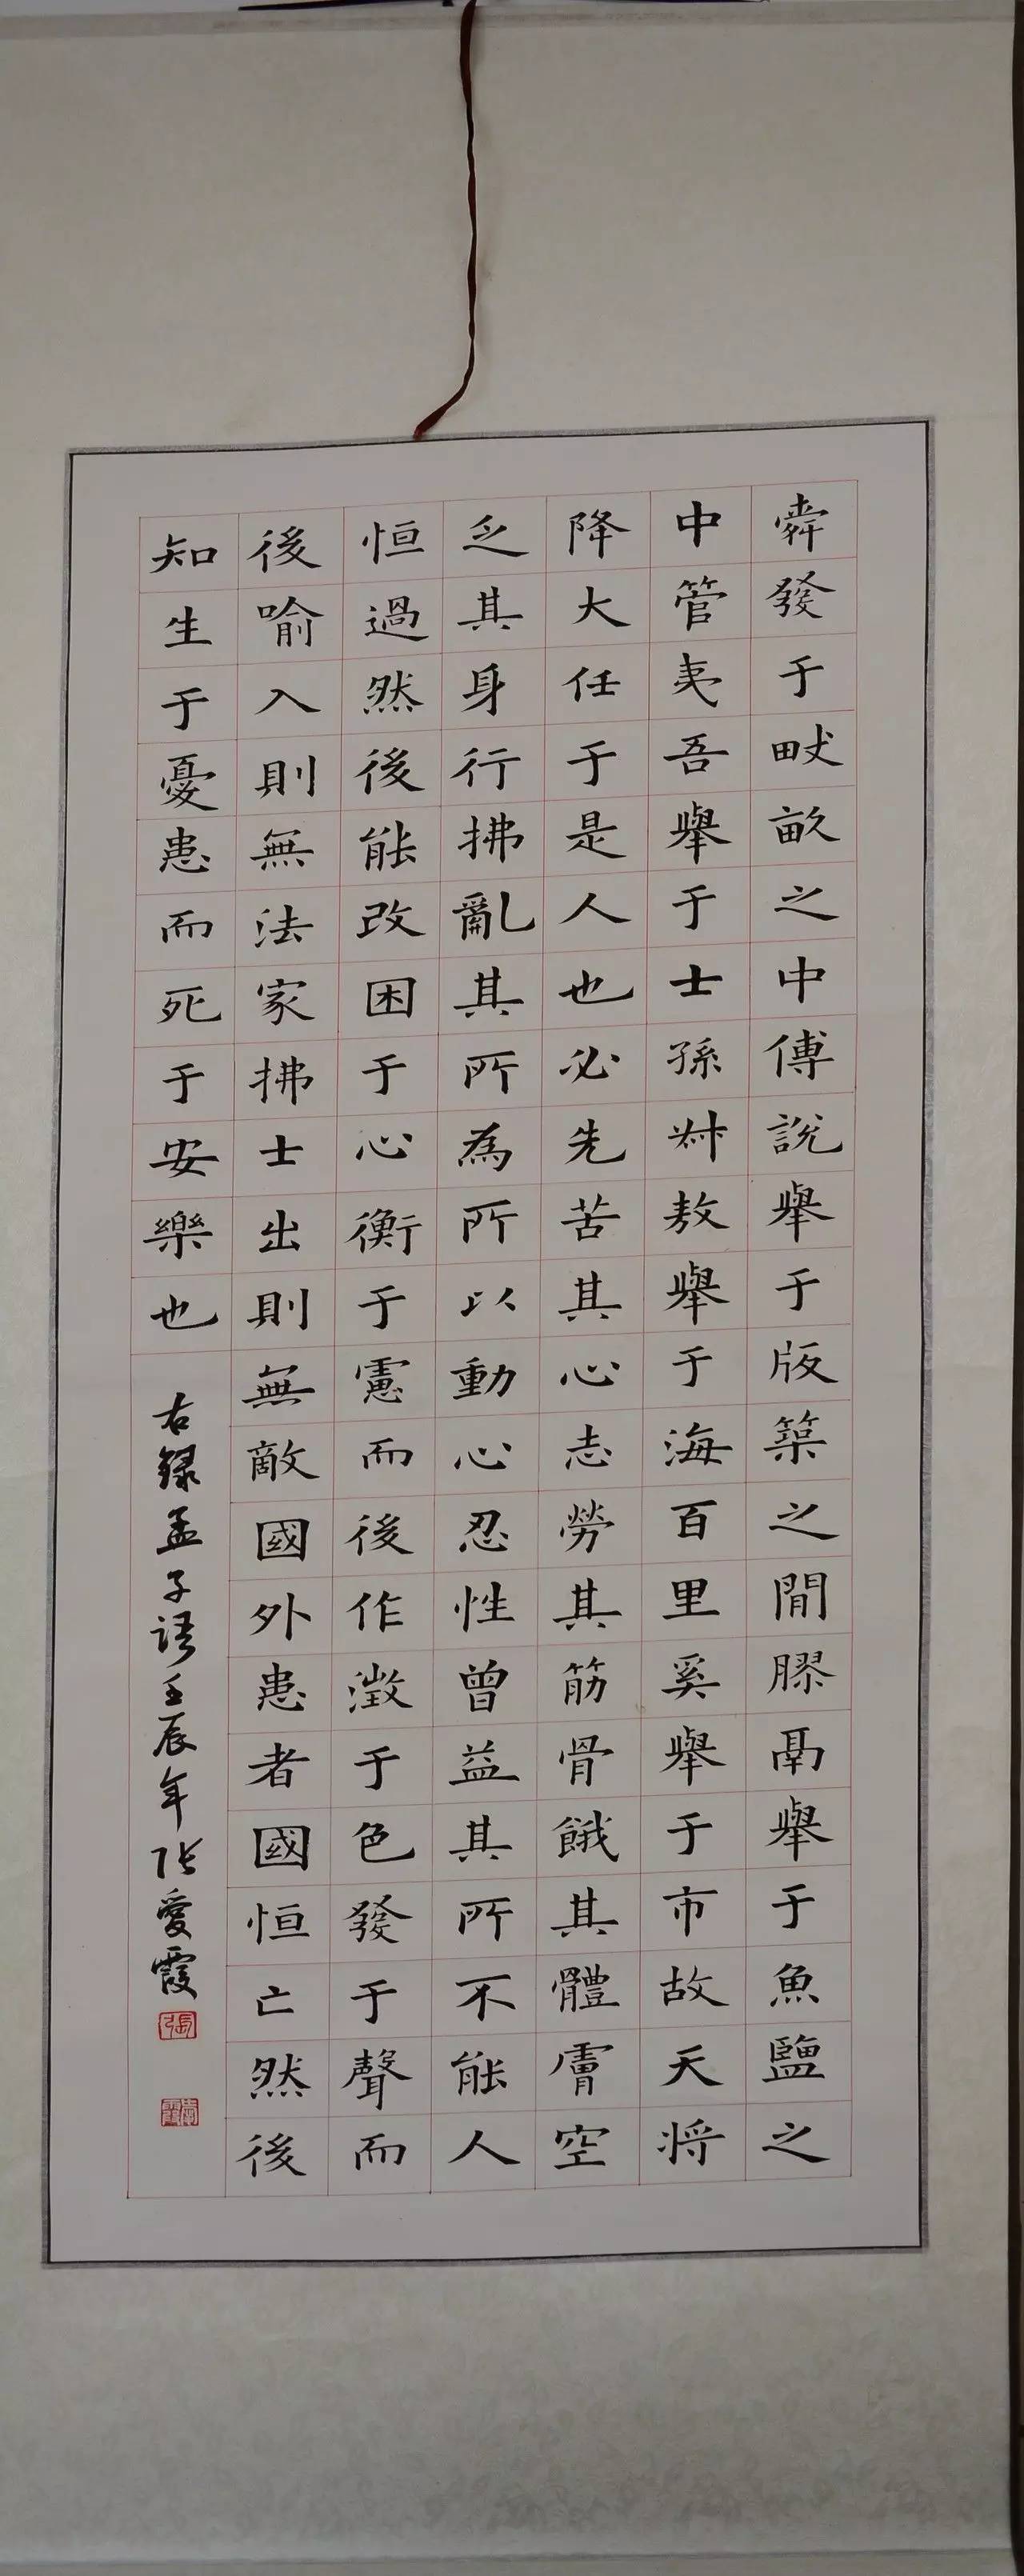 舜發于畎畝之中傅說舉于版築之間膠鬲舉于魚鹽之
中管夷吾舉于士孫叔敖舉于海百里奚舉于市故天將
降大任于是人也必先苦其心志勞其筋骨餓其體膚空
乏其身行拂亂其所為所以動心忍性曾益其所不能人
恒過然後能改困于心衡于慮而後作徵于色發于聲而
後喻入則無法家拂士出則無敵國外患者國恒亡然後
知生于憂患而死于安樂也
右錄孟子語壬辰年張愛霞
張
愛霞